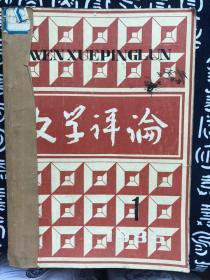 WENXUEPINGLUN
文学评论
1